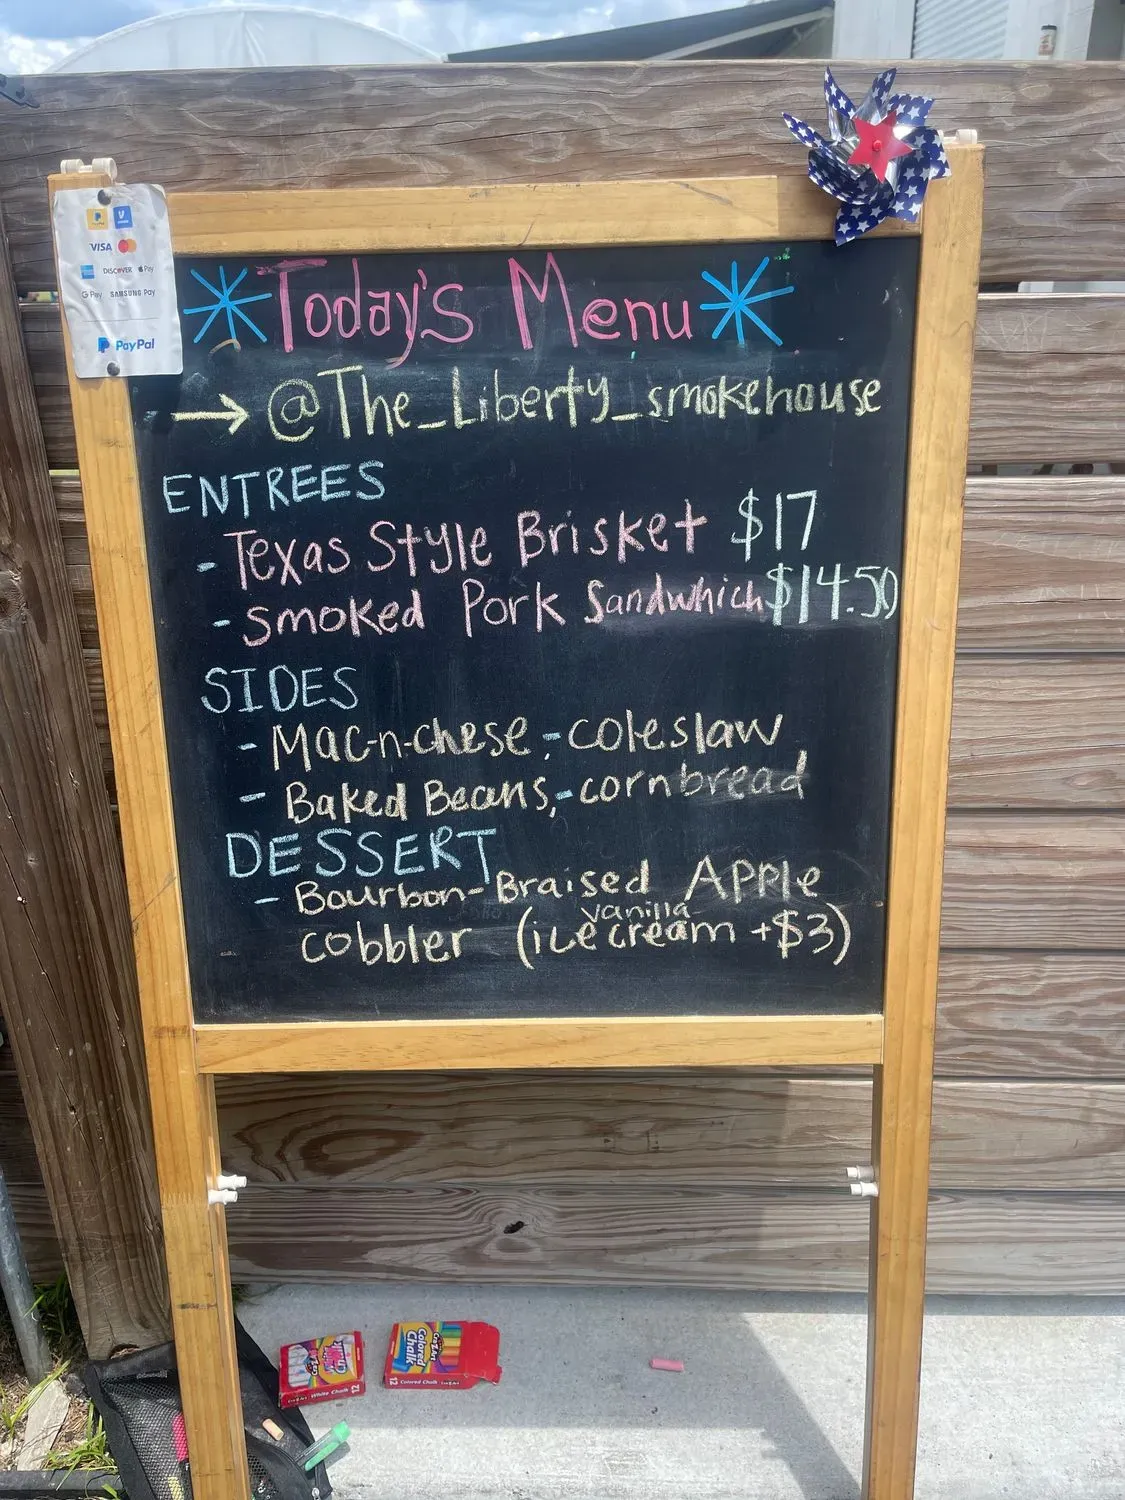 VISA
DISCOVER Pay
G Pay SAMSUNG Pay
PayPal
Today's Menu
→ @The_Liberty_smokehouse
ENTREES
- Texas Style Brisket $17
- smoked Pork Sandwhich $14.50
SIDES
- Mac-n-chese, - coleslaw
- Baked Beans, - cornbread
DESSERT
- Bourbon-Braised Apple
cobbler (ice cream +$3)
vanilla
White Chalk 12
Colored Chalk
12 Colored Chalk